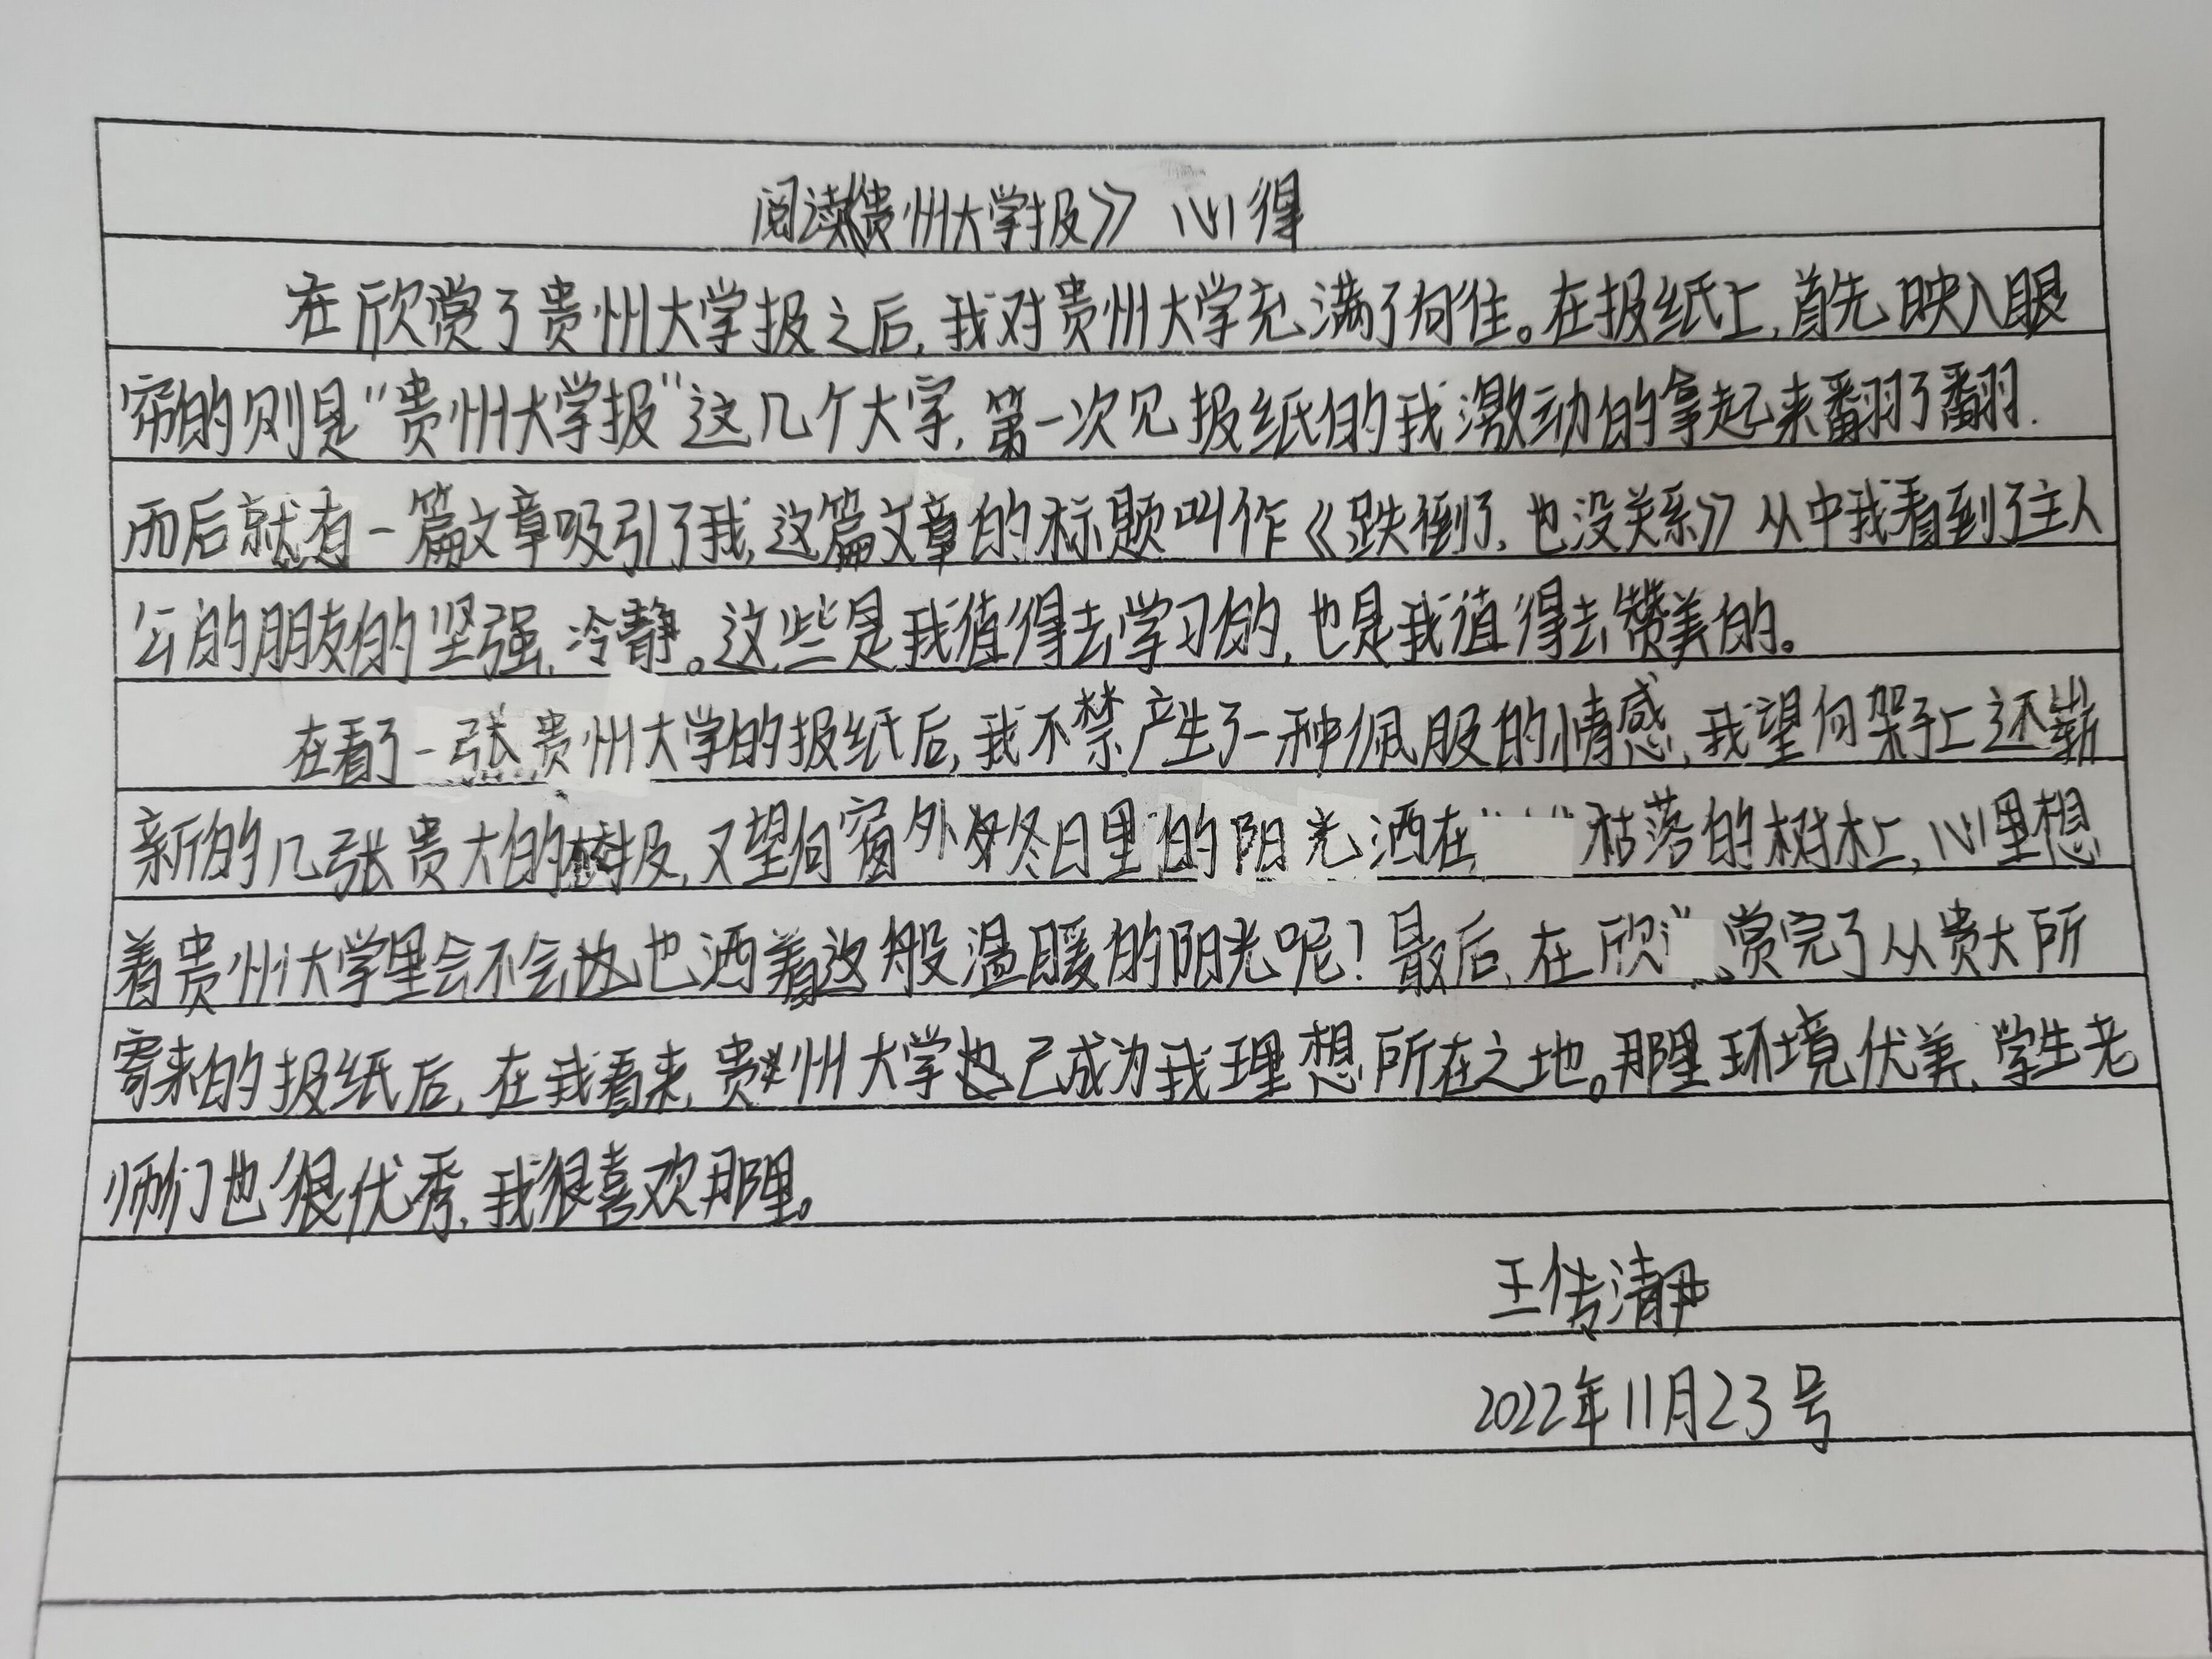 阅读《贵州大学报》心得
在欣赏了贵州大学报之后,我对贵州大学充满了向往。在报纸上,首先映入眼
帘的则是"贵州大学报"这几个大字,第一次见报纸的我激动的拿起来翻了翻.
而后就有一篇文章吸引了我,这篇文章的标题叫作《跌倒了,也没关系》从中我看到了主人
公的朋友的坚强、冷静。这些是我值得去学习的,也是我值得去赞美的。
在看了一张贵州大学的报纸后,我不禁产生了一种佩服的情感,我望向架子上还崭
新的几张贵大的报,又望向窗外冬日里的阳光洒在枯落的树木上,心里想
着贵州大学里会不会也洒着这般温暖的阳光呢!最后,在欣赏完了从贵大所
寄来的报纸后,在我看来,贵州大学已成为我理想所在之地。那里环境优美、学生老
师们也很优秀,我很喜欢那里。
王传清
2022年11月23号